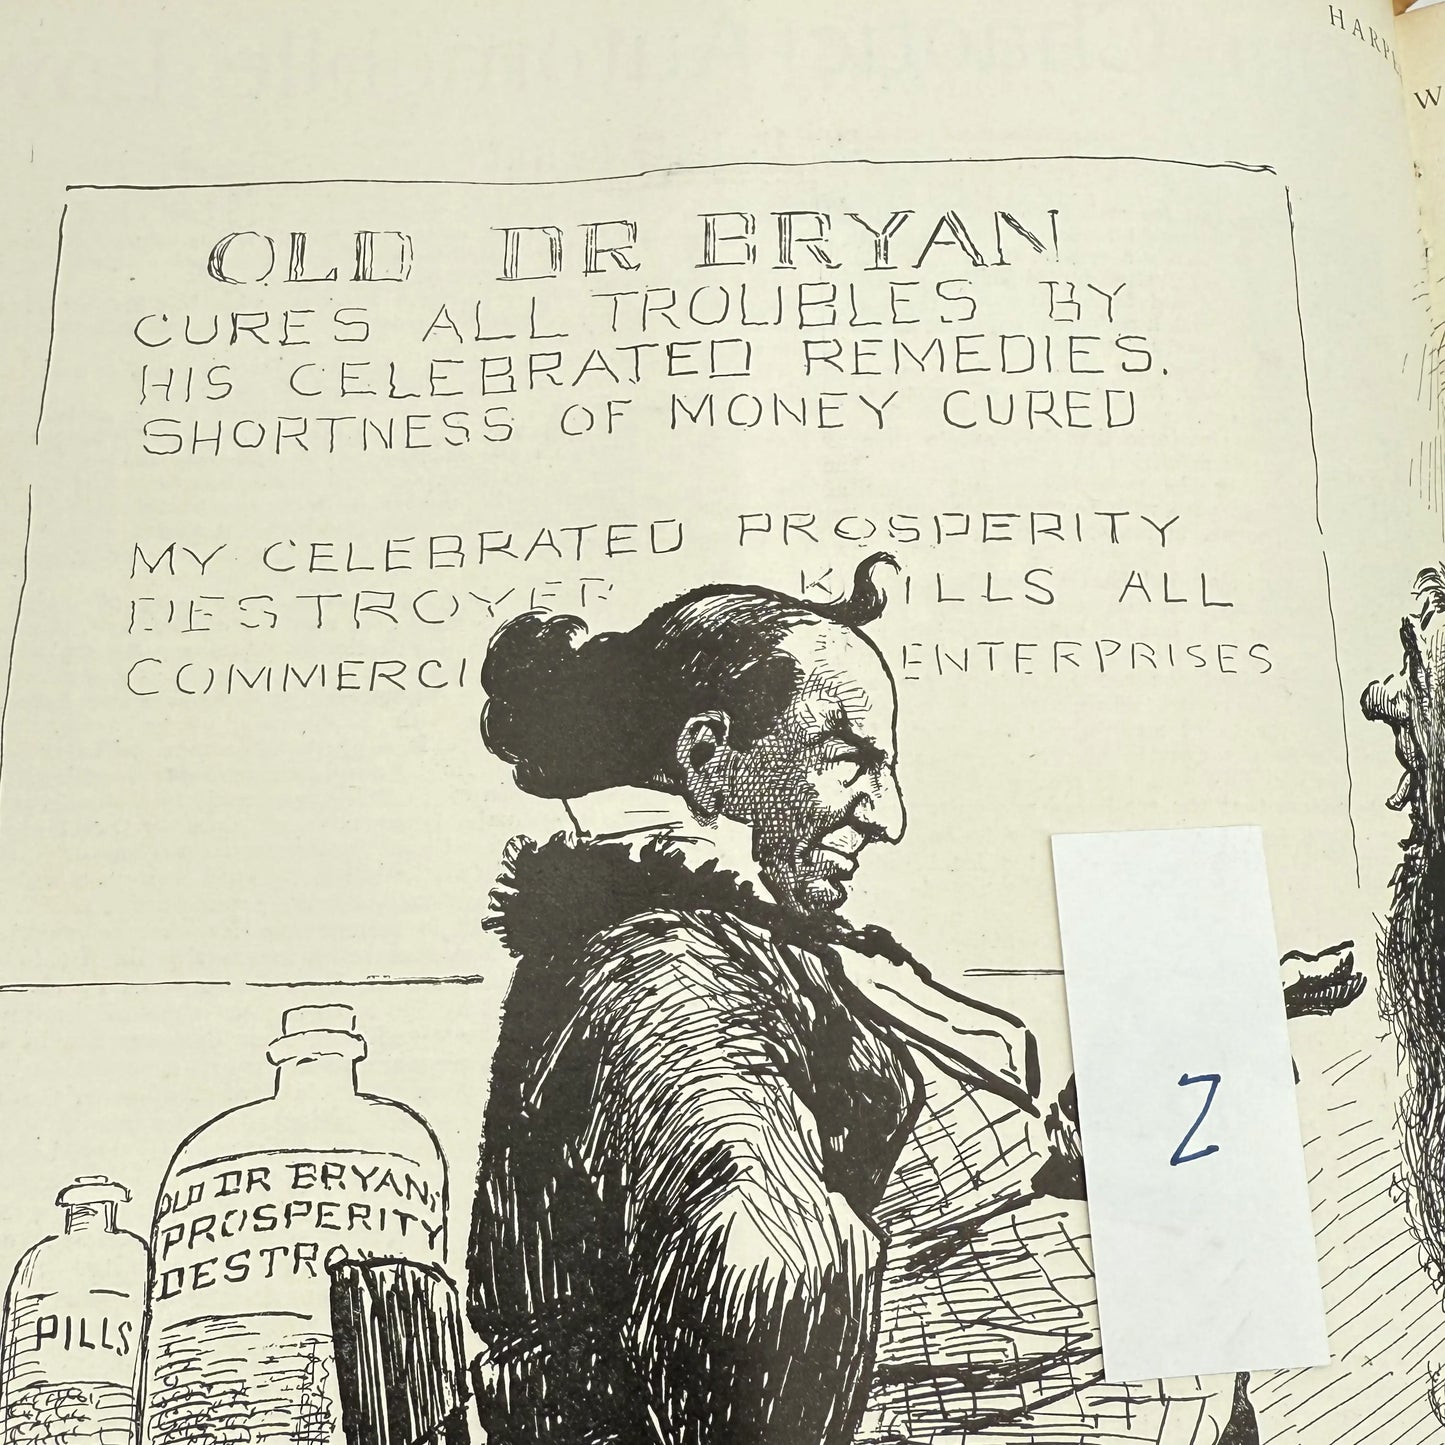 HARPE
W
OLD DR BRYAN
CURES ALL TROUBLES BY
HIS CELEBRATED REMEDIES.
SHORTNESS OF MONEY CURED
MY CELEBRATED PROSPERITY
DESTROYER KILLS ALL
COMMERCI ENTERPRISES
OLD DR BRYAN'S
PROSPERITY
DESTRO
PILLS
Z